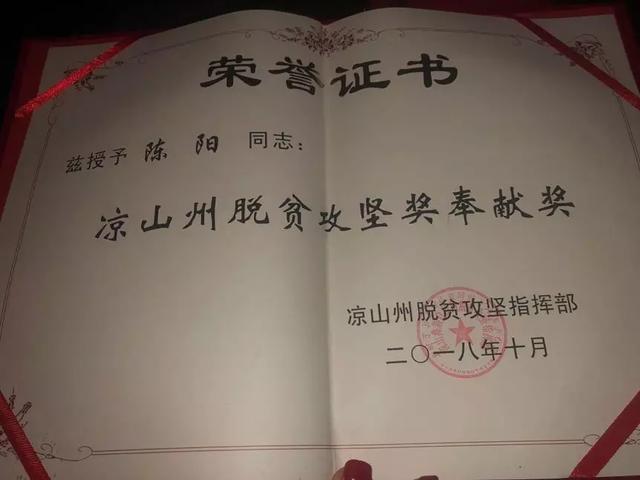 荣誉证书
兹授予 陈阳 同志：
凉山州脱贫攻坚奖奉献奖
凉山州脱贫攻坚指挥部
二〇一八年十月